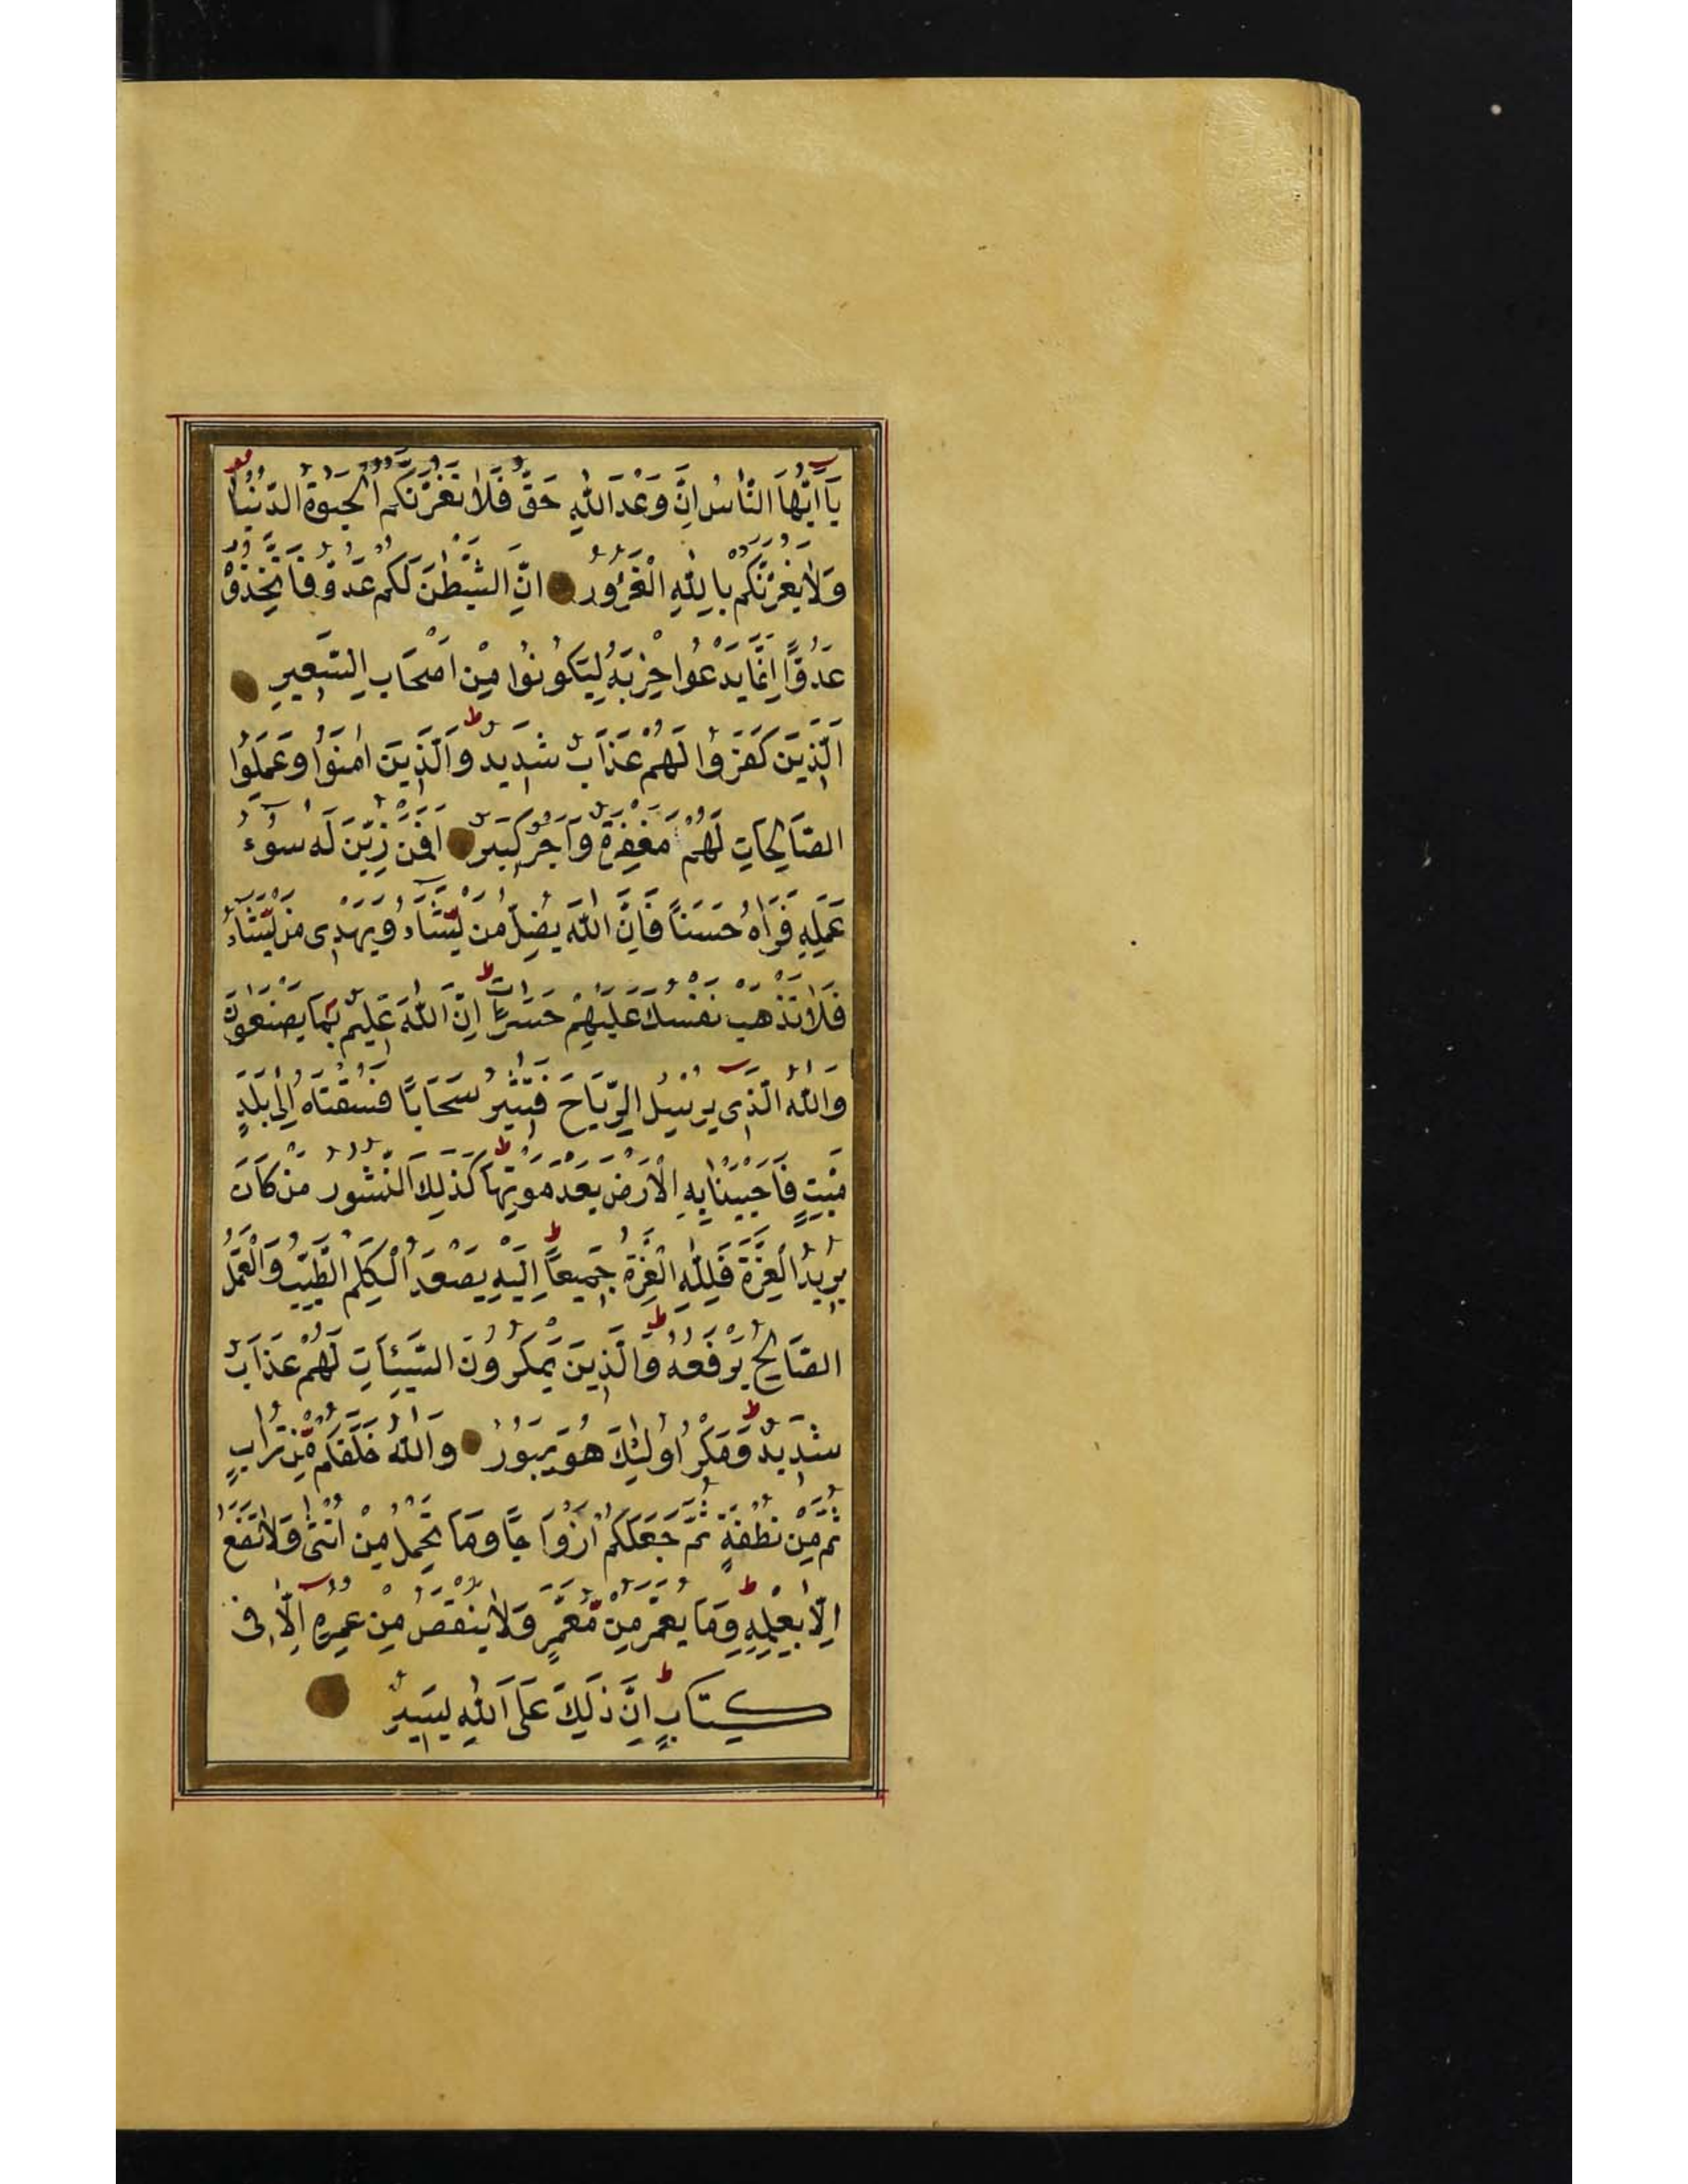 يَا اَيُّهَا النَّاسُ اِنَّ وَعْدَ اللهِ حَقٌّ فَلَا تَغُرَّنَّكُمُ الْحَيٰوةُ الدُّنْيَا
وَلَا يَغُرَّنَّكُمْ بِاللهِ الْغَرُورُ اِنَّ الشَّيْطٰنَ لَكُمْ عَدُوٌّ فَاتَّخِذُوْهُ
عَدُوًّا اِنَّمَا يَدْعُوا حِزْبَهُ لِيَكُونُوا مِنْ اَصْحَابِ السَّعِيرِ
اَلَّذِينَ كَفَرُوا لَهُمْ عَذَابٌ شَدِيدٌ ط وَالَّذِينَ اٰمَنُوا وَعَمِلُوا
الصَّالِحَاتِ لَهُمْ مَغْفِرَةٌ وَاَجْرٌ كَبِيرٌ اَفَمَنْ زُيِّنَ لَهُ سُوءُ
عَمَلِهِ فَرَاٰهُ حَسَنًا فَاِنَّ اللهَ يُضِلُّ مَنْ يَّشَاءُ وَيَهْدِى مَنْ يَّشَاءُ
فَلَا تَذْهَبْ نَفْسُكَ عَلَيْهِمْ حَسَرَاتٍ ط اِنَّ اللهَ عَلِيمٌ بِمَا يَصْنَعُونَ
وَاللهُ الَّذِى يُرْسِلُ الرِّيَاحَ فَتُثِيرُ سَحَابًا فَسُقْنَاهُ اِلٰى بَلَدٍ
مَيِّتٍ فَاَحْيَيْنَا بِهِ الْاَرْضَ بَعْدَ مَوْتِهَا ط كَذٰلِكَ النُّشُورُ مَنْ كَانَ
يُرِيدُ الْعِزَّةَ فَلِلّٰهِ الْعِزَّةُ جَمِيعًا ط اِلَيْهِ يَصْعَدُ الْكَلِمُ الطَّيِّبُ وَالْعَمَلُ
الصَّالِحُ يَرْفَعُهُ ط وَالَّذِينَ يَمْكُرُونَ السَّيِّئَاتِ لَهُمْ عَذَابٌ
شَدِيدٌ ط وَمَكْرُ اُولٰئِكَ هُوَ يَبُورُ وَاللهُ خَلَقَكُمْ مِّنْ تُرَابٍ
ثُمَّ مِنْ نُطْفَةٍ ثُمَّ جَعَلَكُمْ اَزْوَاجًا وَمَا تَحْمِلُ مِنْ اُنْثٰى وَلَا تَضَعُ
اِلَّا بِعِلْمِهِ ط وَمَا يُعَمَّرُ مِنْ مُّعَمَّرٍ وَلَا يُنْقَصُ مِنْ عُمُرِهِ اِلَّا فِى
كِتَابٍ ط اِنَّ ذٰلِكَ عَلَى اللهِ يَسِيرٌ